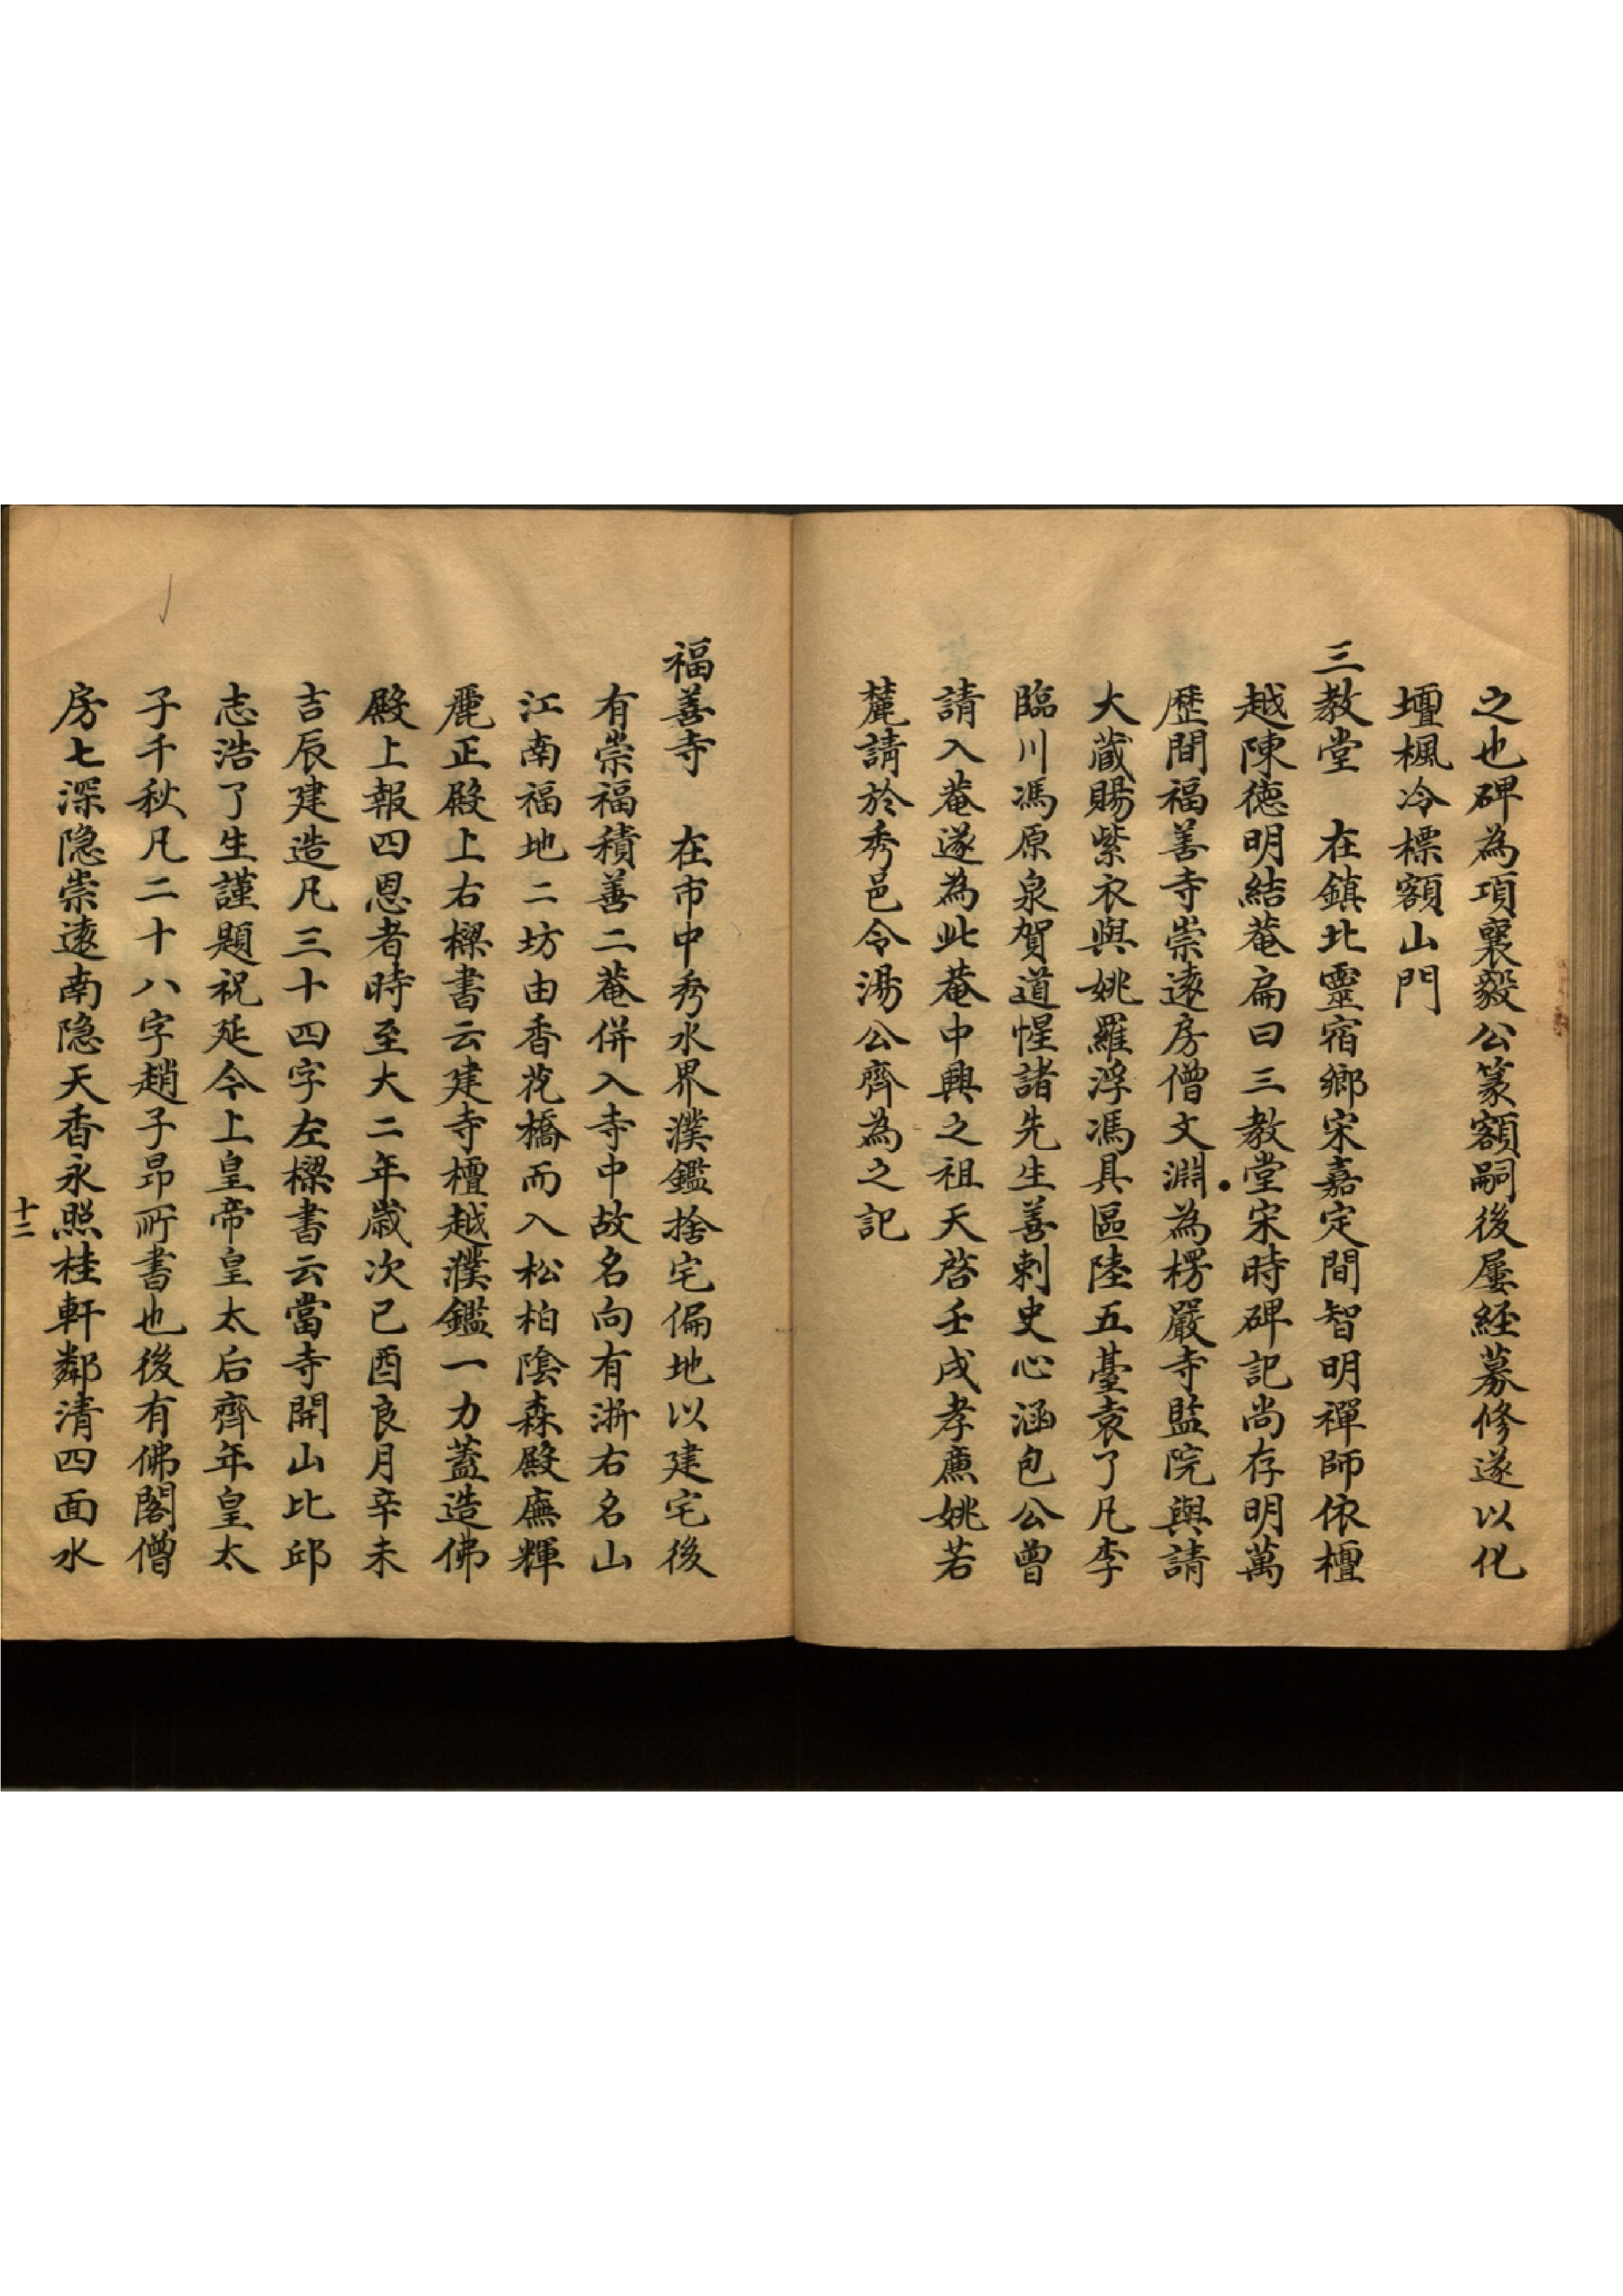 之也碑為項襄毅公篆額嗣後屢經募修遂以化
壇楓冷標額山門
三教堂　在鎮北靈宿鄉宋嘉定間智明禪師依檀
越陳德明結菴扁曰三教堂宋時碑記尚存明萬
歷間福善寺崇遠房僧文淵為楞嚴寺監院與請
大藏賜紫衣與姚羅浮馮具區陸五臺袁了凡李
臨川馮原泉賀道惺諸先生善刺史心涵包公曾
請入菴遂為此菴中興之祖天啓壬戌孝廉姚若
麓請於秀邑令湯公齊為之記
福善寺　在市中秀水界濮鑑捨宅偏地以建宅後
有崇福積善二菴併入寺中故名向有浙右名山
江南福地二坊由香花橋而入松柏陰森殿廡輝
麗正殿上右樑書云建寺檀越濮鑑一力蓋造佛
殿上報四恩者時至大二年歲次已酉良月辛未
吉辰建造凡三十四字左樑書云當寺開山比邱
志浩了生謹題祝延今上皇帝皇太后齊年皇太
子千秋凡二十八字趙子昂所書也後有佛閣僧
房七深隐崇遠南隐天香永照桂軒鄰清四面水
十二